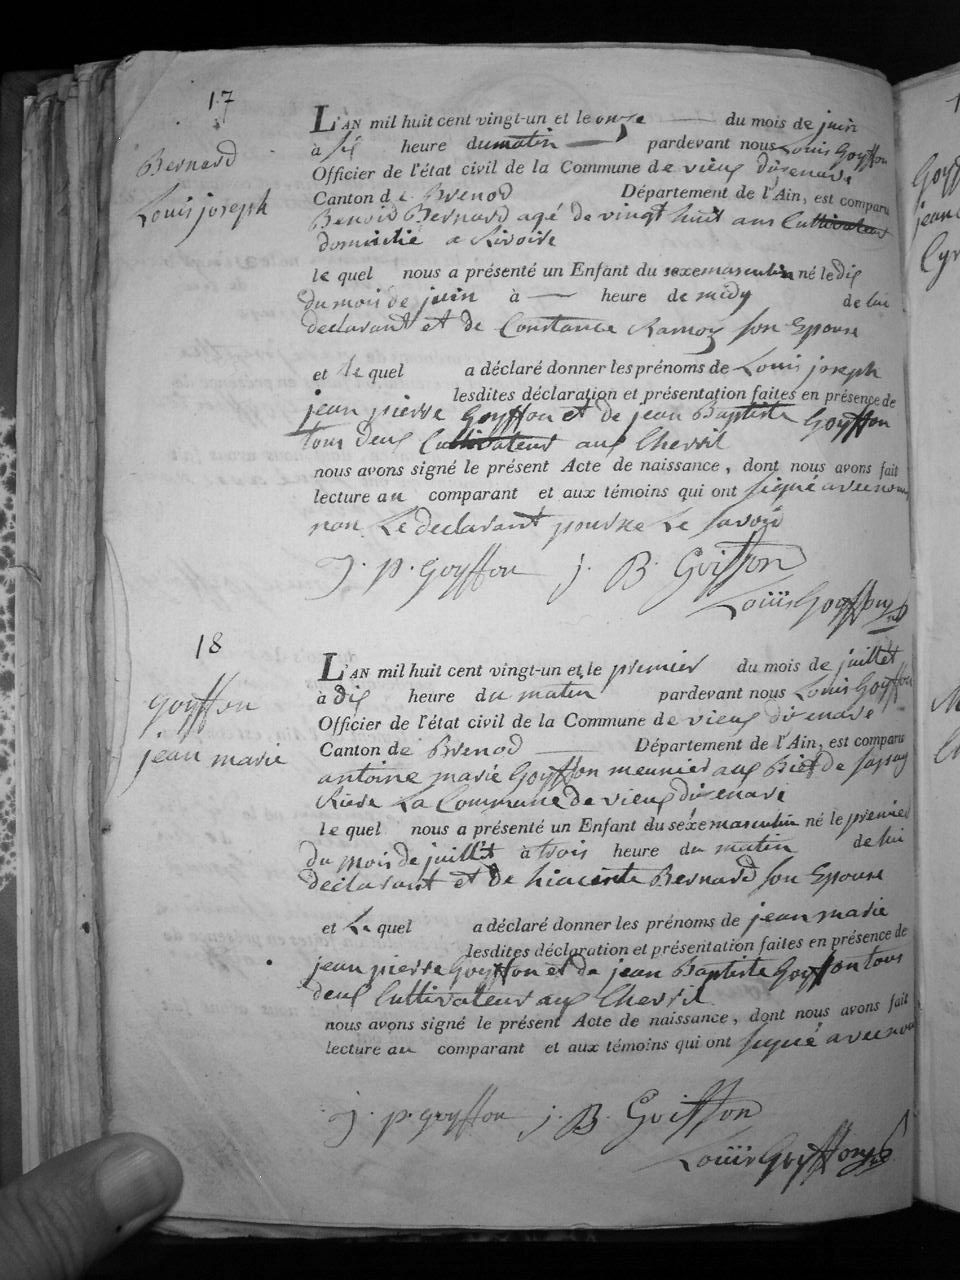 17
Bernard
Louis joseph
L'AN mil huit cent vingt-un et le onze du mois de juin
à six heure du matin pardevant nous Louis Goyffon
Officier de l'état civil de la Commune de vieux disenave
Canton de Brenod Département de l'Ain, est comparu
Benoid Bernard agé de vingt huit ans Cultivateur
domicilié a Rivoire
le quel nous a présenté un Enfant du sexe masculin né le dix
du mois de juin à heure de midy de lui
declarant et de Constance Ramoz son Epouse
et le quel a déclaré donner les prénoms de Louis joseph
lesdites déclaration et présentation faites en présence de
jean pierre Goyffon et de jean Baptiste Goyffon
tous deux Cultivateur aux Cherril
nous avons signé le présent Acte de naissance, dont nous avons fait
lecture au comparant et aux témoins qui ont signé avec nous
non Le declarant pour ne Le savoir
J. P. Goyffon J. B. Goiffon
Louis Goyffon
18
Goyffon
jean marie
L'AN mil huit cent vingt-un et le premier du mois de juillet
à dix heure du matin pardevant nous Louis Goyffon
Officier de l'état civil de la Commune de vieux disenave
Canton de Brenod Département de l'Ain, est comparu
antoine marie Goyffon meunier aux Bief de
Riere La Commune de vieux disenave
le quel nous a présenté un Enfant du sexe masculin né le premier
du mois de juillit à trois heure du matin de lui
declarant et de hiacente Bernard son Epouse
et Le quel a déclaré donner les prénoms de jean marie
lesdites déclaration et présentation faites en présence de
jean pierre Goyffon et de jean Baptiste Goyffon tous
deux Cultivateur aux Cherril
nous avons signé le présent Acte de naissance, dont nous avons fait
lecture au comparant et aux témoins qui ont signé avec nous
J. P. Goyffon J. B. Goiffon
Louis Goyffon